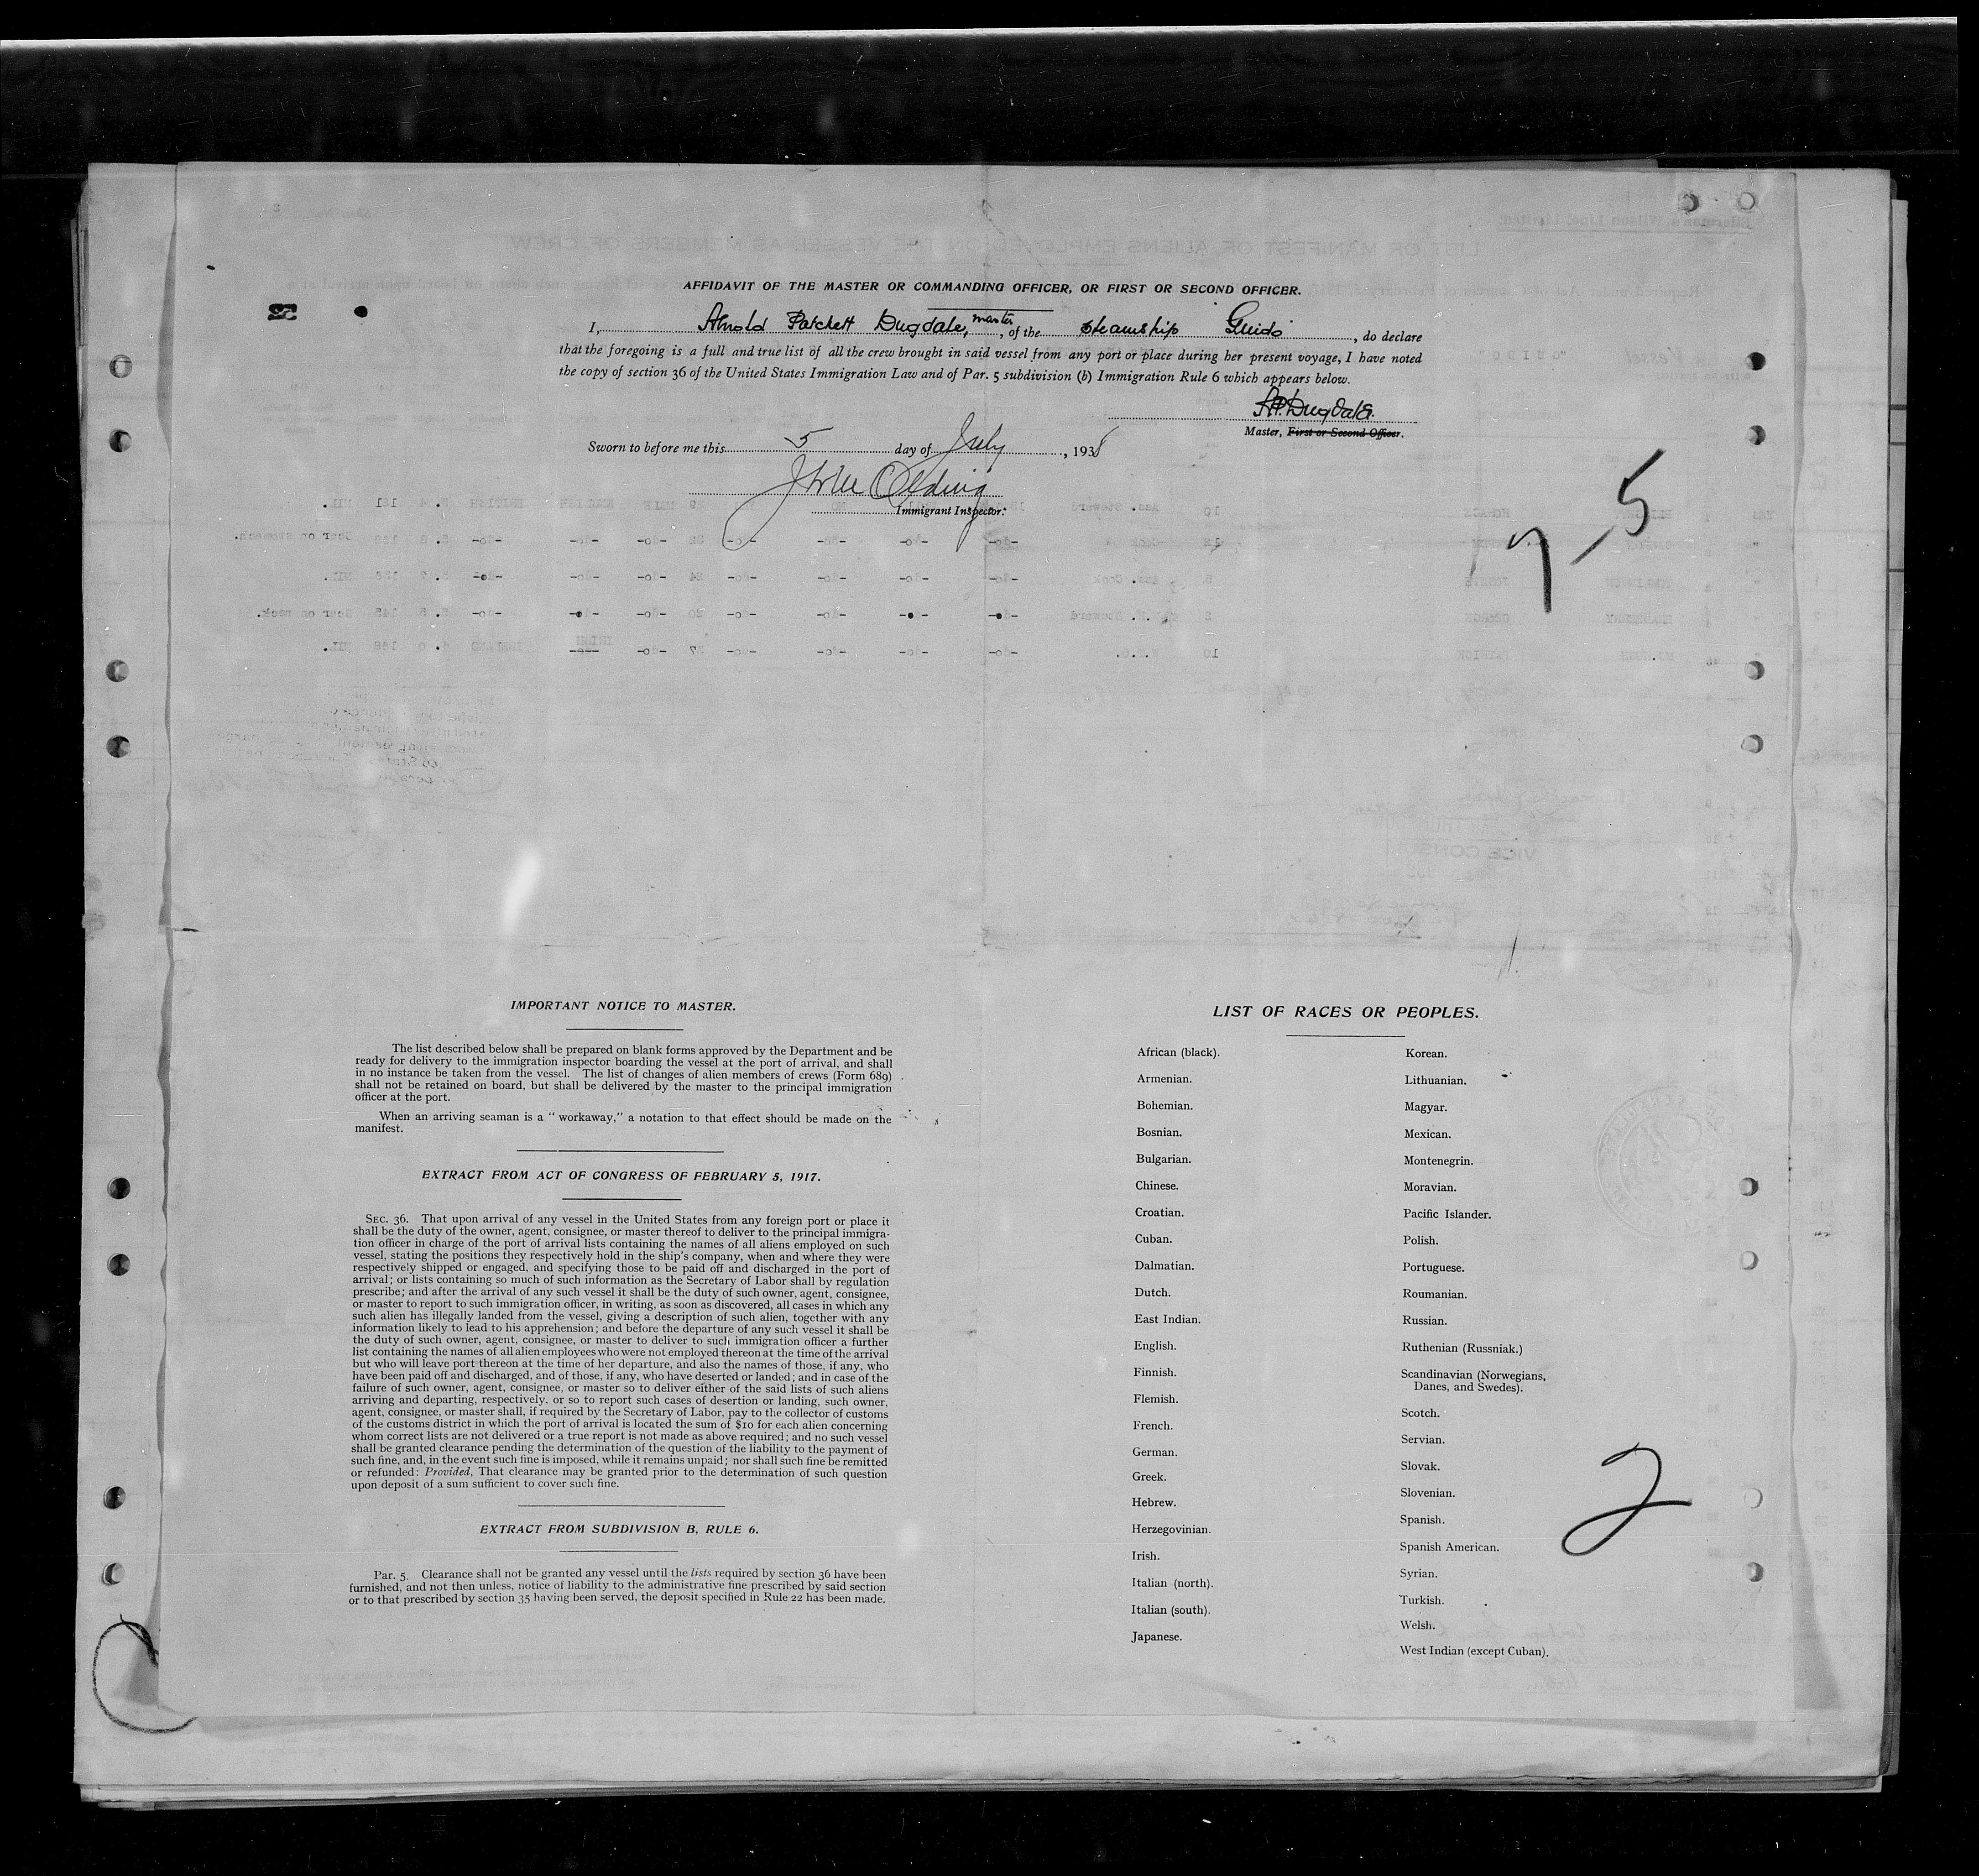 AFFIDAVIT OF THE MASTER OR COMMANDING OFFICER, OR FIRST OR SECOND OFFICER.
I, Arnold Patchett Dugdale, master, of the steamship "Guido", do declare
that the foregoing is a full and true list of all the crew brought in said vessel from any port or place during her present voyage, I have noted
the copy of section 36 of the United States Immigration Law and of Par. 5 subdivision (b) Immigration Rule 6 which appears below.
A.P. Dugdale.
Master, First or Second Officer.
Sworn to before me this 5 day of July, 193
Immigrant Inspector.
7-5
IMPORTANT NOTICE TO MASTER.
The list described below shall be prepared on blank forms approved by the Department and be
ready for delivery to the immigration inspector boarding the vessel at the port of arrival, and shall
in no instance be taken from the vessel. The list of changes of alien members of crews (Form 689)
shall not be retained on board, but shall be delivered by the master to the principal immigration
officer at the port.
When an arriving seaman is a "workaway," a notation to that effect should be made on the
manifest.
EXTRACT FROM ACT OF CONGRESS OF FEBRUARY 5, 1917.
SEC. 36. That upon arrival of any vessel in the United States from any foreign port or place it
shall be the duty of the owner, agent, consignee, or master thereof to deliver to the principal immigra-
tion officer in charge of the port of arrival lists containing the names of all aliens employed on such
vessel, stating the positions they respectively hold in the ship's company, when and where they were
respectively shipped or engaged, and specifying those to be paid off and discharged in the port of
arrival; or lists containing so much of such information as the Secretary of Labor shall by regulation
prescribe; and after the arrival of any such vessel it shall be the duty of such owner, agent, consignee,
or master to report to such immigration officer, in writing, as soon as discovered, all cases in which any
such alien has illegally landed from the vessel, giving a description of such alien, together with any
information likely to lead to his apprehension; and before the departure of any such vessel it shall be
the duty of such owner, agent, consignee, or master to deliver to such immigration officer a further
list containing the names of all alien employees who were not employed thereon at the time of the arrival
but who will leave port thereon at the time of her departure, and also the names of those, if any, who
have been paid off and discharged, and of those, if any, who have deserted or landed; and in case of the
failure of such owner, agent, consignee, or master so to deliver either of the said lists of such aliens
arriving and departing, respectively, or so to report such cases of desertion or landing, such owner,
agent, consignee, or master shall, if required by the Secretary of Labor, pay to the collector of customs
of the customs district in which the port of arrival is located the sum of $10 for each alien concerning
whom correct lists are not delivered or a true report is not made as above required; and no such vessel
shall be granted clearance pending the determination of the question of the liability to the payment of
such fine, and, in the event such fine is imposed, while it remains unpaid; nor shall such fine be remitted
or refunded: Provided, That clearance may be granted prior to the determination of such question
upon deposit of a sum sufficient to cover such fine.
EXTRACT FROM SUBDIVISION B, RULE 6.
Par. 5. Clearance shall not be granted any vessel until the lists required by section 36 have been
furnished, and not then unless, notice of liability to the administrative fine prescribed by said section
or to that prescribed by section 35 having been served, the deposit specified in Rule 22 has been made.
LIST OF RACES OR PEOPLES.
African (black).
Armenian.
Bohemian.
Bosnian.
Bulgarian.
Chinese.
Croatian.
Cuban.
Dalmatian.
Dutch.
East Indian.
English.
Finnish.
Flemish.
French.
German.
Greek.
Hebrew.
Herzegovinian.
Irish.
Italian (north).
Italian (south).
Japanese.
Korean.
Lithuanian.
Magyar.
Mexican.
Montenegrin.
Moravian.
Pacific Islander.
Polish.
Portuguese.
Roumanian.
Russian.
Ruthenian (Russniak.)
Scandinavian (Norwegians,
Danes, and Swedes).
Scotch.
Servian.
Slovak.
Slovenian.
Spanish.
Spanish American.
Syrian.
Turkish.
Welsh.
West Indian (except Cuban).
2